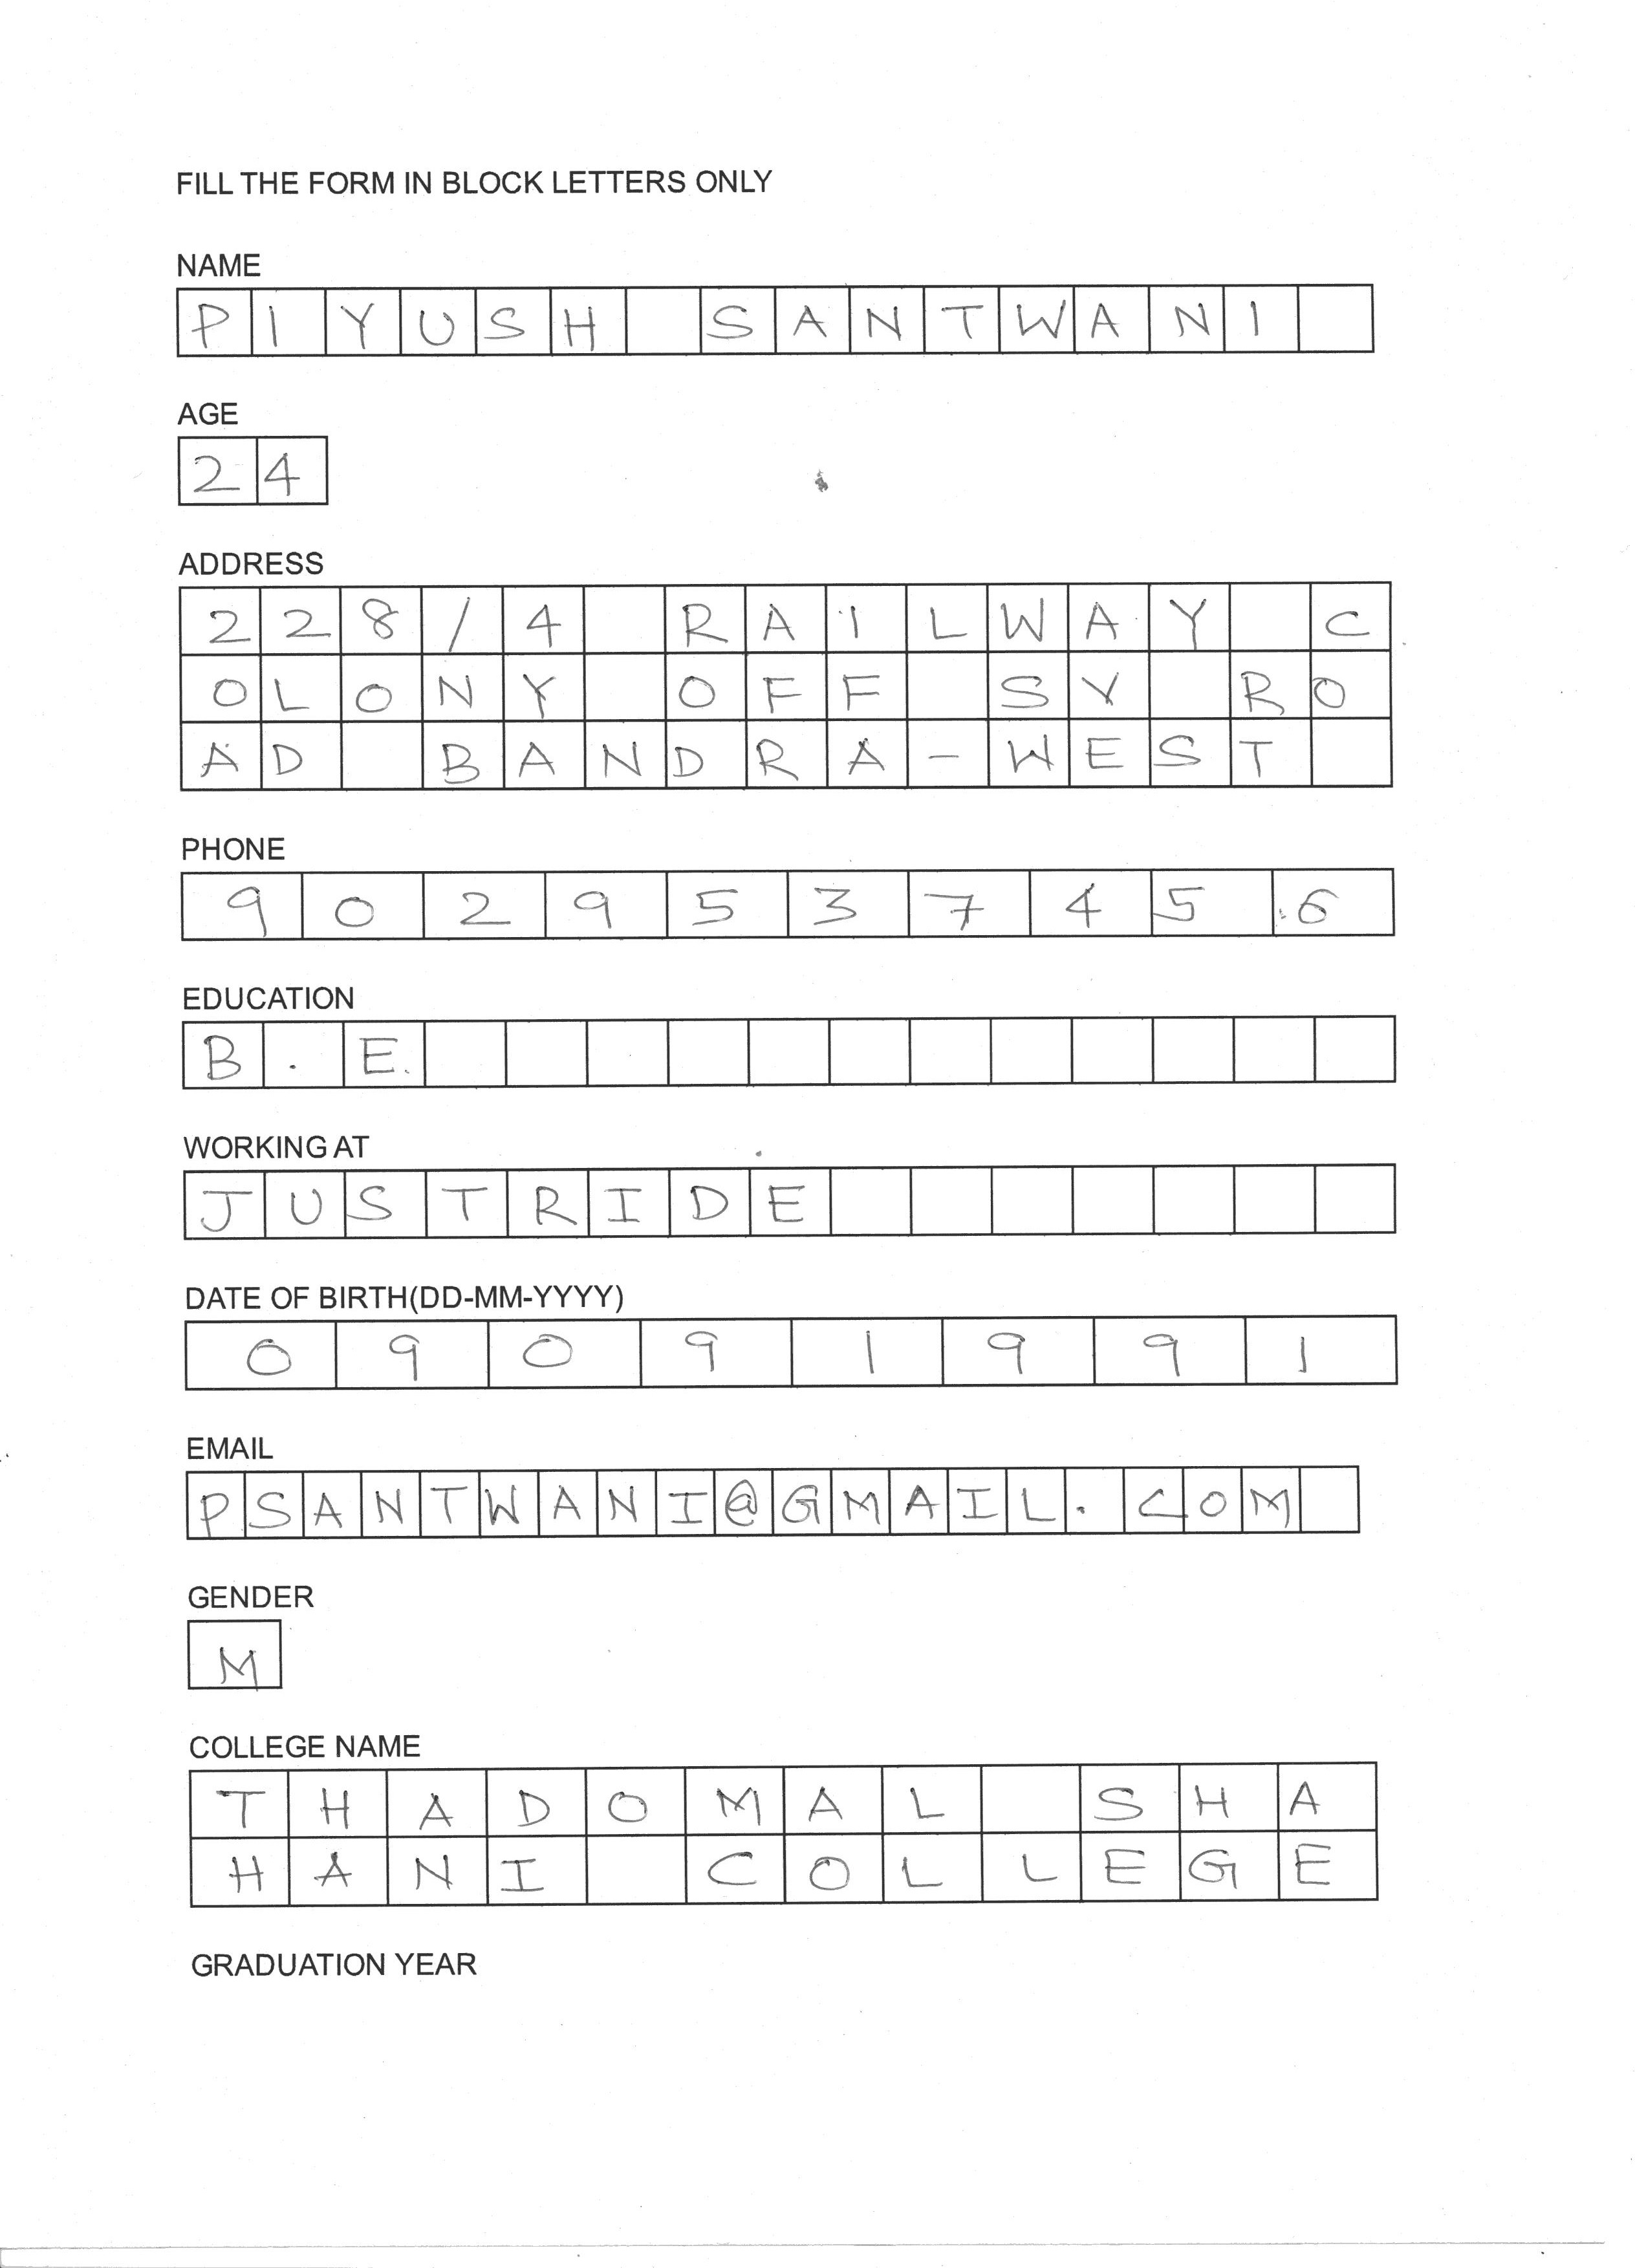 FILL THE FORM IN BLOCK LETTERS ONLY
NAME
PIYUSH SANTWANI
AGE
24
ADDRESS
228/4 RAILWAY C
OLONY OFF SV RO
AD BANDRA-WEST
PHONE
9029537456
EDUCATION
B.E.
WORKING AT
JUSTRIDE
DATE OF BIRTH(DD-MM-YYYY)
09091991
EMAIL
PSANTWANI@GMAIL.COM
GENDER
M
COLLEGE NAME
THADOMAL SHA
HANI COLLEGE
GRADUATION YEAR